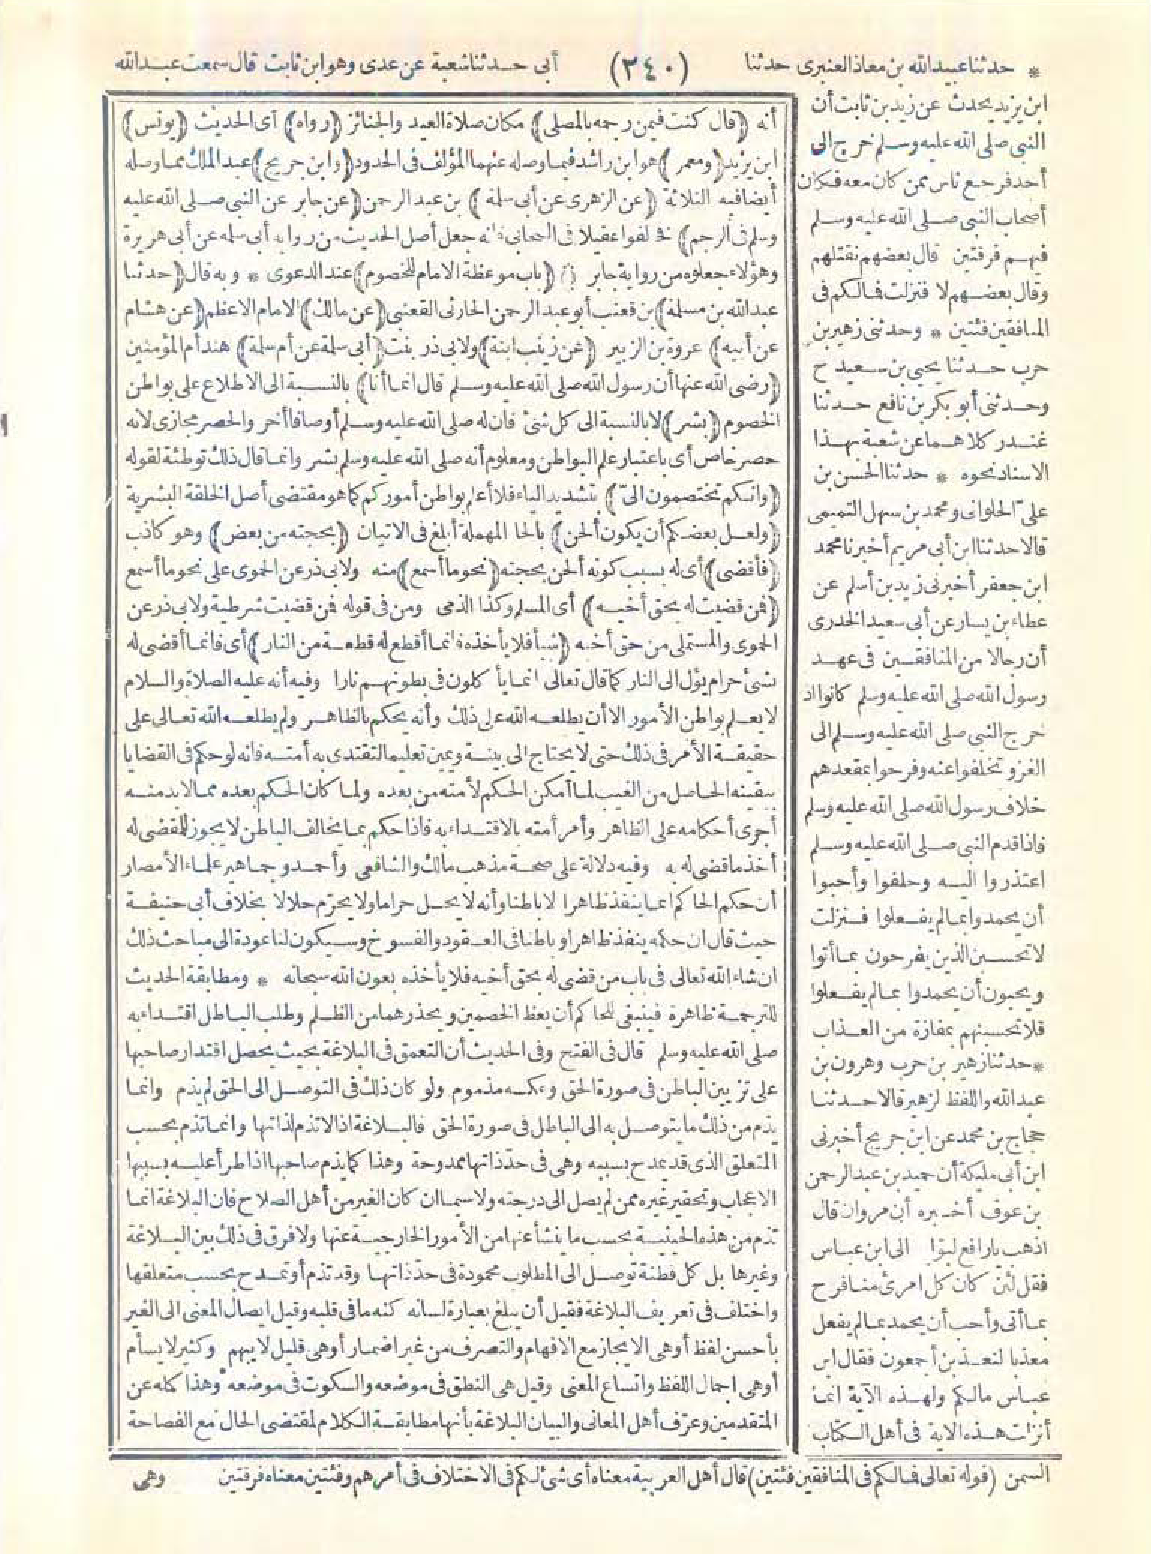 * حدثنا عبيدالله بن معاذ العنبرى حدثنا (٢٤٠) أبى حدثنا شعبة عن عدى وهو ابن ثابت قال سمعت عبدالله
ابن يزيد يحدث عن زيد بن ثابت أن
النبى صلى الله عليه وسلم خرج الى
أحد فرجع ناس ممن كان معه فكان
أصحاب النبى صلى الله عليه وسلم
فيهم فرقتين قال بعضهم نقتلهم
وقال بعضهم لا فنزلت فما لكم فى
المنافقين فئتين * وحدثنى زهير بن
حرب حدثنا يحيى بن سعيد ح
وحدثنى أبو بكر بن نافع حدثنا
غندر كلاهما عن شعبة بهذا
الاسناد نحوه * حدثنا الحسن بن
على الحلوانى ومحمد بن سهل التميمى
قالا حدثنا ابن أبى مريم أخبرنا محمد
ابن جعفر أخبرنى زيد بن أسلم عن
عطاء بن يسار عن أبى سعيد الخدرى
أن رجالا من المنافقين فى عهد
رسول الله صلى الله عليه وسلم كانوا اذ
خرج النبى صلى الله عليه وسلم الى
الغزو تخلفوا عنه وفرحوا بمقعدهم
خلاف رسول الله صلى الله عليه وسلم
فاذا قدم النبى صلى الله عليه وسلم
اعتذروا اليه وحلفوا وأحبوا
أن يحمدوا بما لم يفعلوا فنزلت
لا تحسبن الذين يفرحون بما أتوا
ويحبون أن يحمدوا بما لم يفعلوا
فلا تحسبنهم بمفازة من العذاب
* حدثنا زهير بن حرب وهرون بن
عبدالله واللفظ لزهير قالا حدثنا
حجاج بن محمد عن ابن جريج أخبرنى
ابن أبى مليكة أن حميد بن عبدالرحمن
بن عوف أخبره أن مروان قال
اذهب يا رافع لبوّابه الى ابن عباس
فقل لئن كان كل امرئ منا فرح
بما أتى وأحب أن يحمد بما لم يفعل
معذبا لنعذبن أجمعون فقال ابن
عباس مالكم ولهذه الآية انما
أنزلت هذه الاية فى أهل الكتاب
أنه (قال كنت فيمن رجمه بالمصلى) مكان صلاة العيد والجنائز (رواه) أى الحديث (يونس)
ابن يزيد (ومعمر) هو ابن راشد فيما وصله عنهما المؤلف فى الحدود (وابن جريج) عبد الملك مما وصله
أيضا فيه الثلاثة (عن الزهرى عن أبى سلمة) بن عبد الرحمن (عن جابر عن النبى صلى الله عليه
وسلم فى الرجم) خالفوا عقيلا فى الصحابى فانه جعل أصل الحديث من رواية أبى سلمة عن أبى هريرة
وهؤلاء جعلوه من رواية جابر (باب موعظة الامام للخصوم) عند الدعوى * وبه قال (حدثنا
عبدالله بن مسلمة) بن قعنب أبو عبد الرحمن الحارثى القعنبى (عن مالك) الامام الاعظم (عن هشام
عن أبيه) عروة بن الزبير (عن زينب ابنة) ولابى ذر بنت (أبى سلمة عن أم سلمة) هند أم المؤمنين
(رضى الله عنها أن رسول الله صلى الله عليه وسلم قال انما أنا) بالنسبة الى الاطلاع على بواطن
الخصوم (بشر) لا بالنسبة الى كل شئ فان له صلى الله عليه وسلم أوصافا أخر والحصر مجازى لانه
حصر خاص أى باعتبار علم البواطن ومعلوم أنه صلى الله عليه وسلم بشر وانما قال ذلك توطئة لقوله
(وانكم تختصمون الىّ) بتشديد الياء فلا أعلم بواطن أموركم كما هو مقتضى أصل الخلقة البشرية
(ولعل بعضكم أن يكون ألحن) بالحا المهملة أبلغ فى الاتيان (بحجته من بعض) وهو كاذب
(فأقضى) أى له بسبب كونه ألحن بحجته (نحو ما أسمع) منه ولابى ذر عن الحموى على نحو ما أسمع
(فمن قضيت له بحق أخيه) أى المسلم وكذا الذمى ومن فى قوله فمن قضيت شرطية ولابى ذر عن
الحموى والمستملى من حق أخيه (شيأ فلا يأخذه فانما أقطع له قطعة من النار) أى فانما أقضى له
بشئ حرام يؤل الى النار كما قال تعالى انما يأكلون فى بطونهم نارا وفيه أنه عليه الصلاة والسلام
لا يعلم بواطن الأمور الا أن يطلعه الله على ذلك وأنه يحكم بالظاهر ولم يطلعه الله تعالى على
حقيقة الأمر فى ذلك حتى لا يحتاج الى بينة ويمين تعليما لتقتدى به أمته فانه لو حكم فى القضايا
بيقينه الحاصل من الغيب لما أمكن الحكم لأمته من بعده ولما كان الحكم بعده مما لابد منه
أجرى أحكامه على الظاهر وأمر أمته بالاقتداء به فاذا حكم بما يخالف الباطن لا يجوز للمقضى له
أخذ ما قضى له به وفيه دلالة على صحة مذهب مالك والشافعى وأحمد وجماهير علماء الأمصار
أن حكم الحاكم انما ينفذ ظاهرا لا باطنا وأنه لا يحل حراما ولا يحرّم حلالا بخلاف أبى حنيفة
حيث قال ان حكمه ينفذ ظاهرا وباطنا فى العقود والفسوخ وسيكون لنا عودة الى مباحث ذلك
ان شاء الله تعالى فى باب من قضى له بحق أخيه فلا يأخذه بعون الله سبحانه * ومطابقة الحديث
للترجمة ظاهرة فينبغى للحاكم أن يعظ الخصمين ويحذرهما من الظلم وطلب الباطل اقتداء به
صلى الله عليه وسلم قال فى الفتح وفى الحديث أن التعمق فى البلاغة بحيث يحصل اقتدار صاحبها
على تزيين الباطل فى صورة الحق وعكسه مذموم ولو كان ذلك فى التوصل الى الحق لم يذم وانما
يذم من ذلك ما يتوصل به الى الباطل فى صورة الحق فالبلاغة اذا لا تذم لذاتها وانما تذم بحسب
المتعلق الذى قد يمدح بسببه وهى فى حدّ ذاتها ممدوحة وهذا كما يذم صاحبها اذا طرأ عليه بسببها
الاعجاب وتحقير غيره ممن لم يصل الى درجته ولا سيما ان كان الغير من أهل الصلاح فان البلاغة انما
تذم من هذه الحيثية بحسب ما ينشأ عنها من الأمور الخارجية عنها ولا فرق فى ذلك بين البلاغة
وغيرها بل كل فطنة توصل الى المطلوب محمودة فى حدّ ذاتها وقد تذم أو تمدح بحسب متعلقها
واختلف فى تعريف البلاغة فقيل أن يبلغ بعبارة لسانه كنه ما فى قلبه وقيل ايصال المعنى الى الغير
بأحسن لفظ أو هى الايجاز مع الافهام والتصرف من غير اضمار أو هى قليل لا يبهم وكثير لا يسأم
أو هى اجمال اللفظ واتساع المعنى وقيل هى النطق فى موضعه والسكوت فى موضعه وهذا كله عن
المتقدمين وعرّف أهل المعانى والبيان البلاغة بأنها مطابقة الكلام لمقتضى الحال مع الفصاحة
السمن (قوله تعالى فما لكم فى المنافقين فئتين) قال أهل العربية معناه أى شئ لكم فى الاختلاف فى أمرهم وفئتين معناه فرقتين وهى